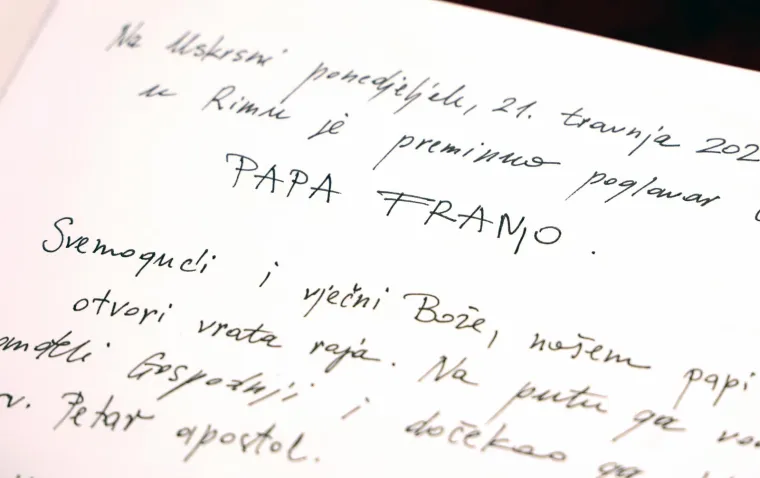 Na Uskrsni ponedjeljek, 21. travnja 202
u Rimu je preminuo poglavar
PAPA FRANJO.
Svemogući i vječni Bože, našem papi
otvori vrata raja. Na putu ga vod
anđeli Gospodnji i dočekao ga
v. Petar apostol.